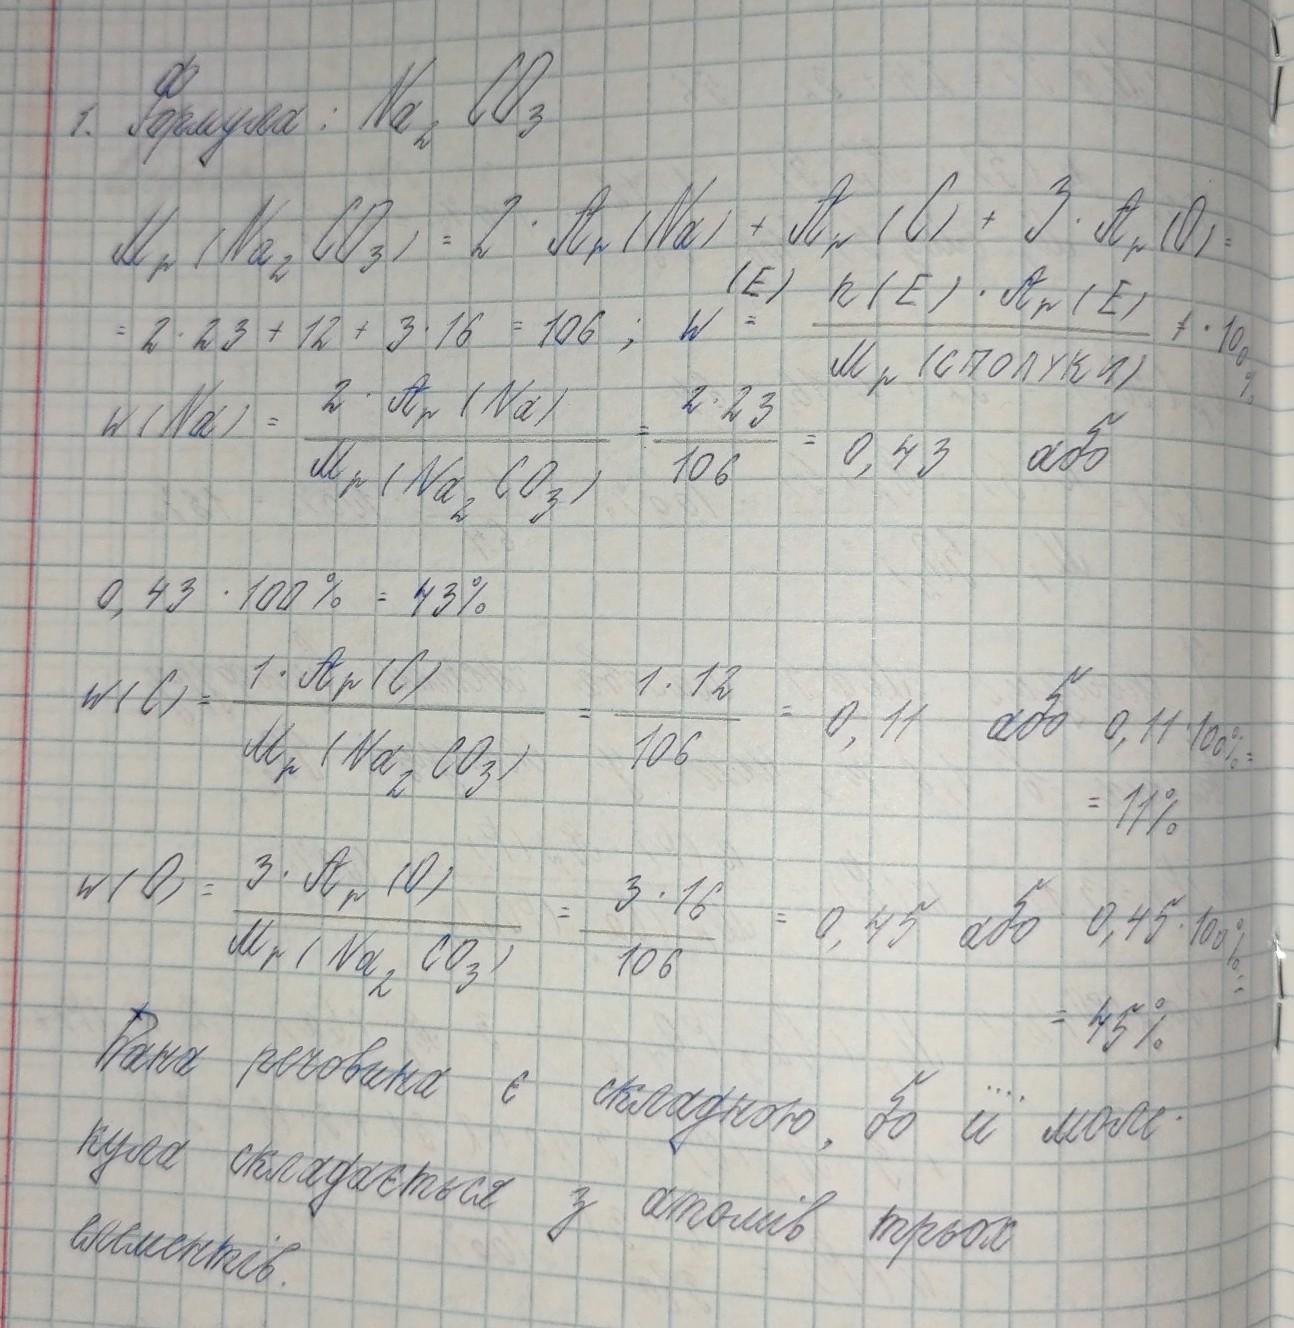 1. Формула: Na₂CO₃
Mr(Na₂CO₃) = 2 · Ar(Na) + Ar(C) + 3 · Ar(O) =
= 2·23 + 12 + 3·16 = 106 ; w(E) = n(E) · Ar(E) / Mr(сполуки) · 100%
w(Na) = 2 · Ar(Na) / Mr(Na₂CO₃) = 2·23 / 106 = 0,43 або
0,43 · 100% = 43%
w(C) = 1 · Ar(C) / Mr(Na₂CO₃) = 1·12 / 106 = 0,11 або 0,11·100% =
= 11%
w(O) = 3 · Ar(O) / Mr(Na₂CO₃) = 3·16 / 106 = 0,45 або 0,45·100% =
= 45%
Дана речовина є складною, бо її моле-
кула складається з атомів трьох
елементів.